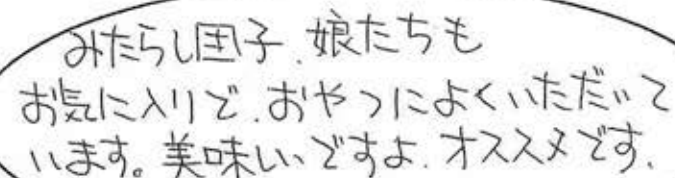 みたらし団子、娘たちも
お気に入りで、おやつによくいただいて
います。美味しいですよ、オススメです、